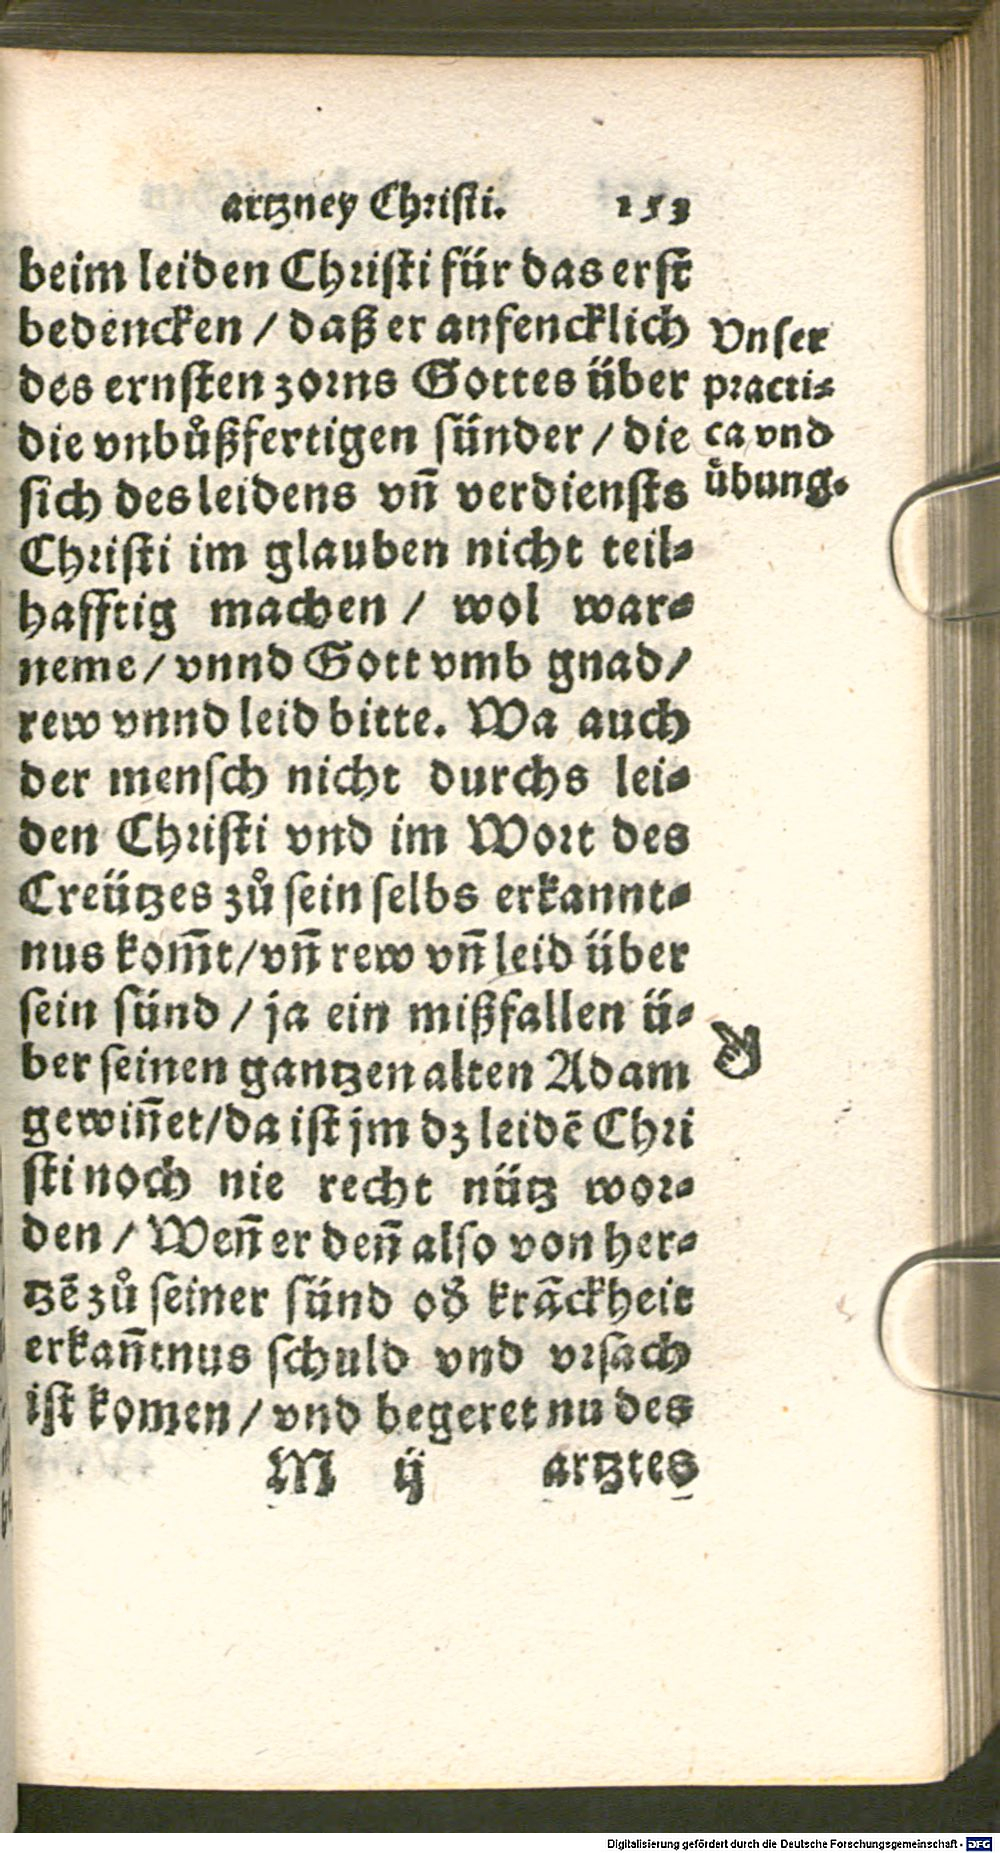 artzney Christi. 153
beim leiden Christi für das erst
bedencken / daß er anfencklich
des ernsten zorns Gottes über
die vnbůßfertigen sünder / die
sich des leidens vñ verdiensts
Christi im glauben nicht teil⸗
hafftig machen / wol war⸗
neme / vnnd Gott vmb gnad /
rew vnnd leid bitte. Wa auch
der mensch nicht durchs lei⸗
den Christi vnd im Wort des
Creützes zů sein selbs erkannt⸗
nus kom̃t / vñ rew vñ leid über
sein sünd / ja ein mißfallen ü⸗
ber seinen gantzen alten Adam
gewiñet / da ist jm dz leidẽ Chri
sti noch nie recht nütz wor⸗
den / Weñ er deñ also von her⸗
tzẽ zů seiner sünd oď krãckheit
erkañtnus schuld vnd vrsach
ist komen / vnd begeret nu des
M ij artztes
Vnser
practi⸗
ca vnd
übung.
Digitalisierung gefördert durch die Deutsche Forschungsgemeinschaft - DFG